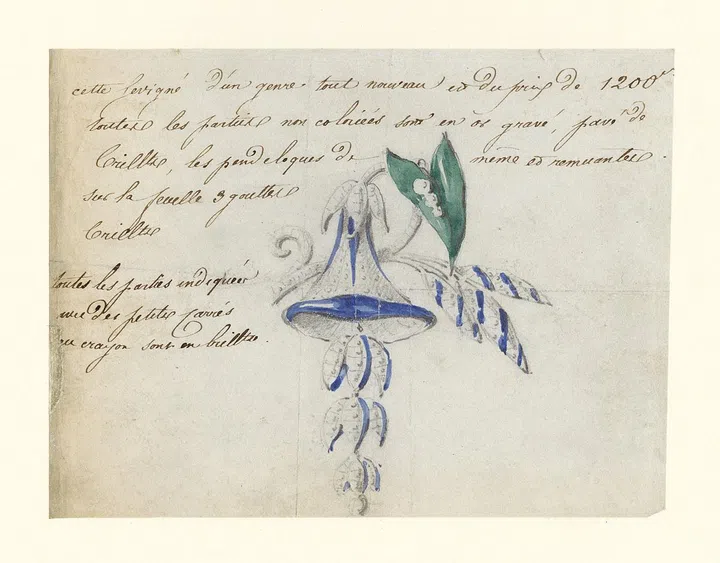 cette Sevigné d'un genre tout nouveau est du prix de 1200ᶠ
toutes les parties non coloriées sont en or gravé, pavé de
brillts, les pendeloques de même et remuantes.
sur la feuille 3 gouttes
brillts
toutes les parties indiquées
avec des petits carrés
au crayon sont en brillts.